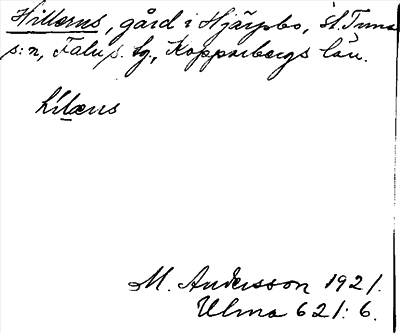 Hillerns, gård i Hjärpbo, St. Tuna
s:n, Falu s. lg., Kopparbergs län.
M. Andersson 1921.
Ulma 621: 6.